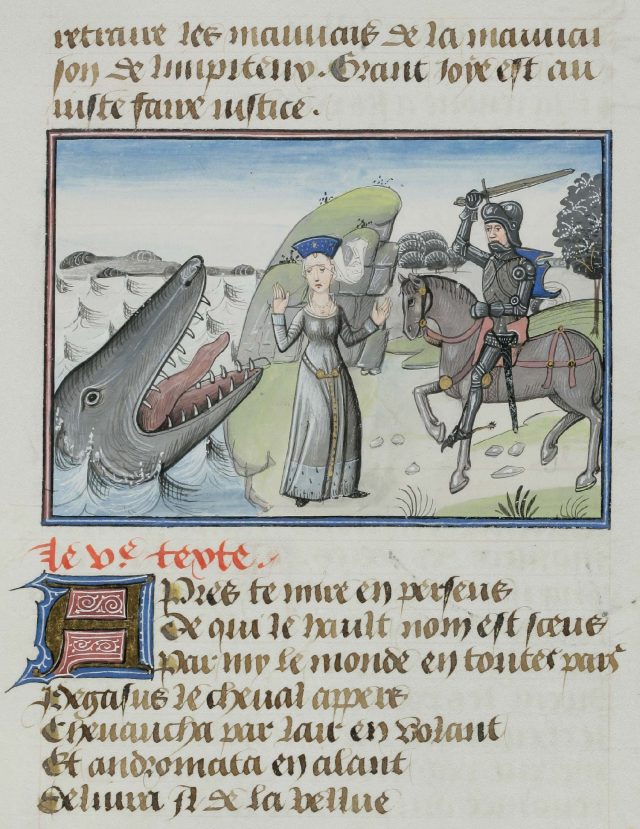 retraire les mauuais de la mauuai
son de . Grant ioye est au
iuste faire iustice .
Le ve texte .
Apres te mire en perseus
De qui le hault nom est sceus
Par my le monde en toutes pars
Pegasus le cheual appers
Cheuaucha par lair en volant
Et andromata en alant
Deliura il de la bellue